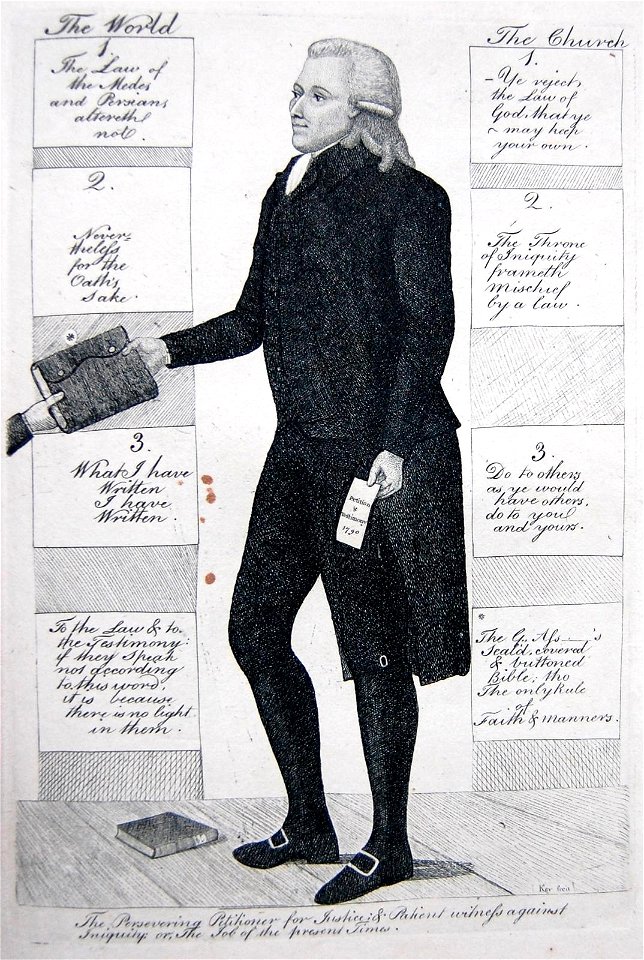 The World
1.
The Law of
the Medes
and Persians
altereth
not.
2.
Never-
theless
for the
Oath's
sake.
*
3.
What I have
Written
I have
Written.
To the Law & to
the Testimony:
if they speak
not according
to this word,
it is because
there is no light
in them.
Petition
&
Testimony
1790
The Church
1.
- Ye reject
the Law of
God, that ye
~ may keep
your own.
2.
The Throne
of Iniquity
frameth
Mischief
by a law.
3.
Do to others
as ye would
have others,
do to you
and yours.
*
The G. Ass—'s
Seald, covered
& buttoned
Bible; tho
The only Rule
of
Faith & Manners.
Kay fecit
The Persevering Petitioner for Justice; & Patient witness against
Iniquity: or, The Job of the present Times.